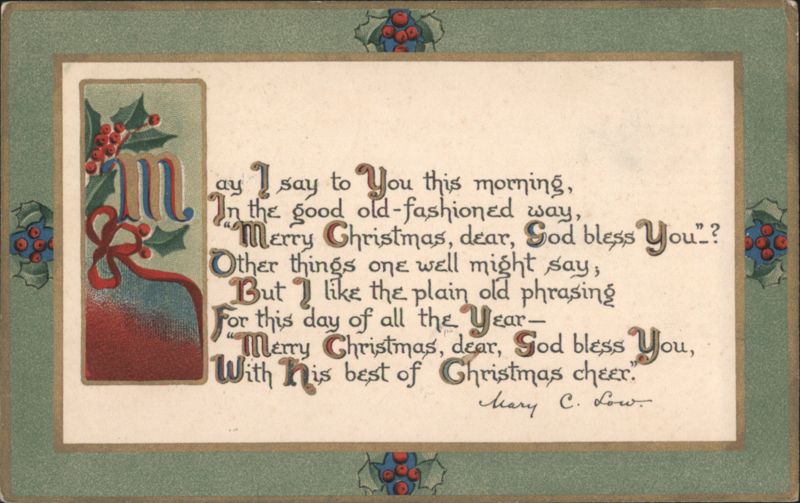 May I say to You this morning,
In the good old-fashioned way,
"Merry Christmas, dear, God bless You"_?
Other things one well might say;
But I like the plain old phrasing
For this day of all the Year—
"Merry Christmas, dear, God bless You,
With His best of Christmas cheer."
Mary C. Low.